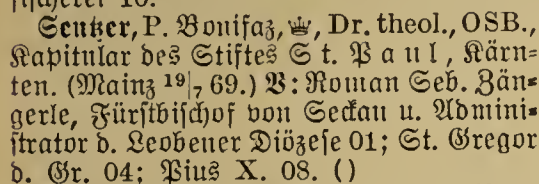 Sentzer, P. Bonifaz, Dr. theol., OSB.,
Kapitular des Stiftes St. Paul, Kärn-
ten. (Mainz 19/7 69.) V: Roman Seb. Zän-
gerle, Fürstbischof von Seckau u. Admini-
strator d. Leobener Diözese 01; St. Gregor
d. Gr. 04; Pius X. 08. ()